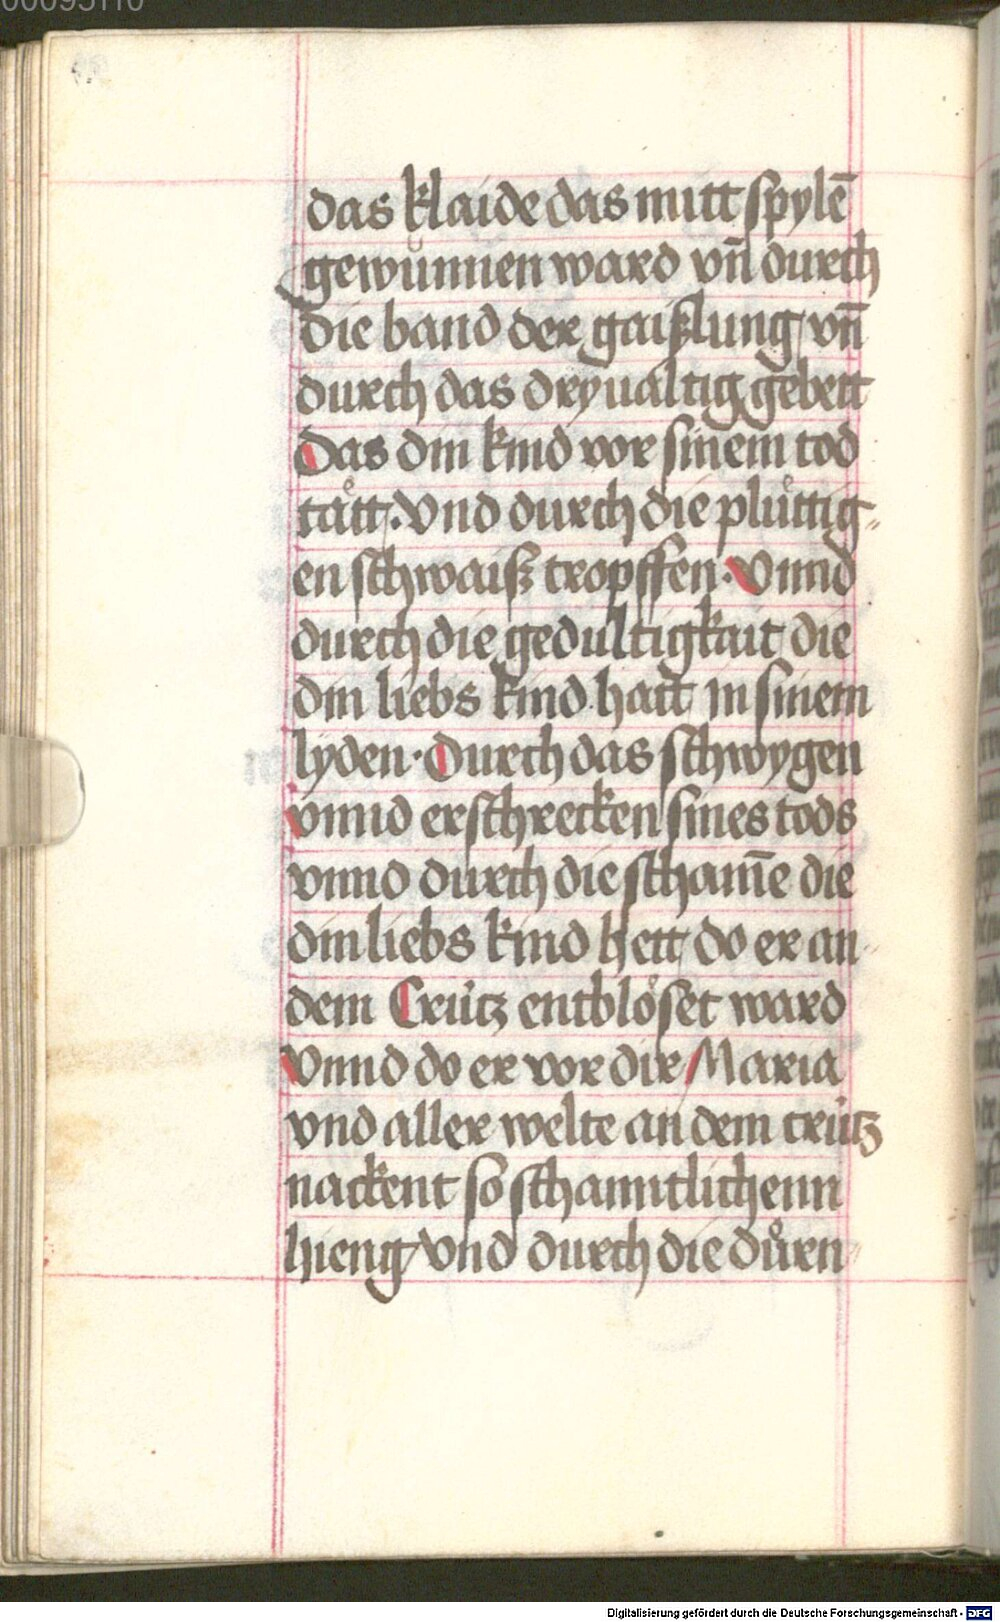 00095110
das klaide das mitt spylē
gewŭnnen ward vn̄ durch
die band der gaißlung vn̄
durch das dryualtig gebett
Das din kind vor sinem tod
tått. Vnd durch die plůttig-
en schwaisz tropffen. Vnnd
durch die gedultigkait die
din liebs kind hatt in sinem
lyden. Durch das schwygen
vnnd erschrecken sines tods
vnnd durch die scham̄e die
din liebs kind hett do er an
dem Crütz entblöset ward
Vnnd do er vor dir Maria
vnd aller welte an dem crütz
nackent so schanntlichenn
hieng Vnd durch die důrn-
Digitalisierung gefördert durch die Deutsche Forschungsgemeinschaft - DFG